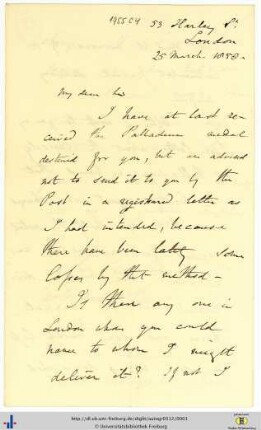 53 Harley St.
London
25 March 1858.
My dear Sir
I have at last re-
ceived the Palladium medal
destined for you, but am advised
not to send it to you by the
Post in a registered letter as
I had intended, because
there have been lately some
losses by that method -
Is there any one in
London whom you could
name to whom I might
deliver it? If not I
© Universitätsbibliothek Freiburg